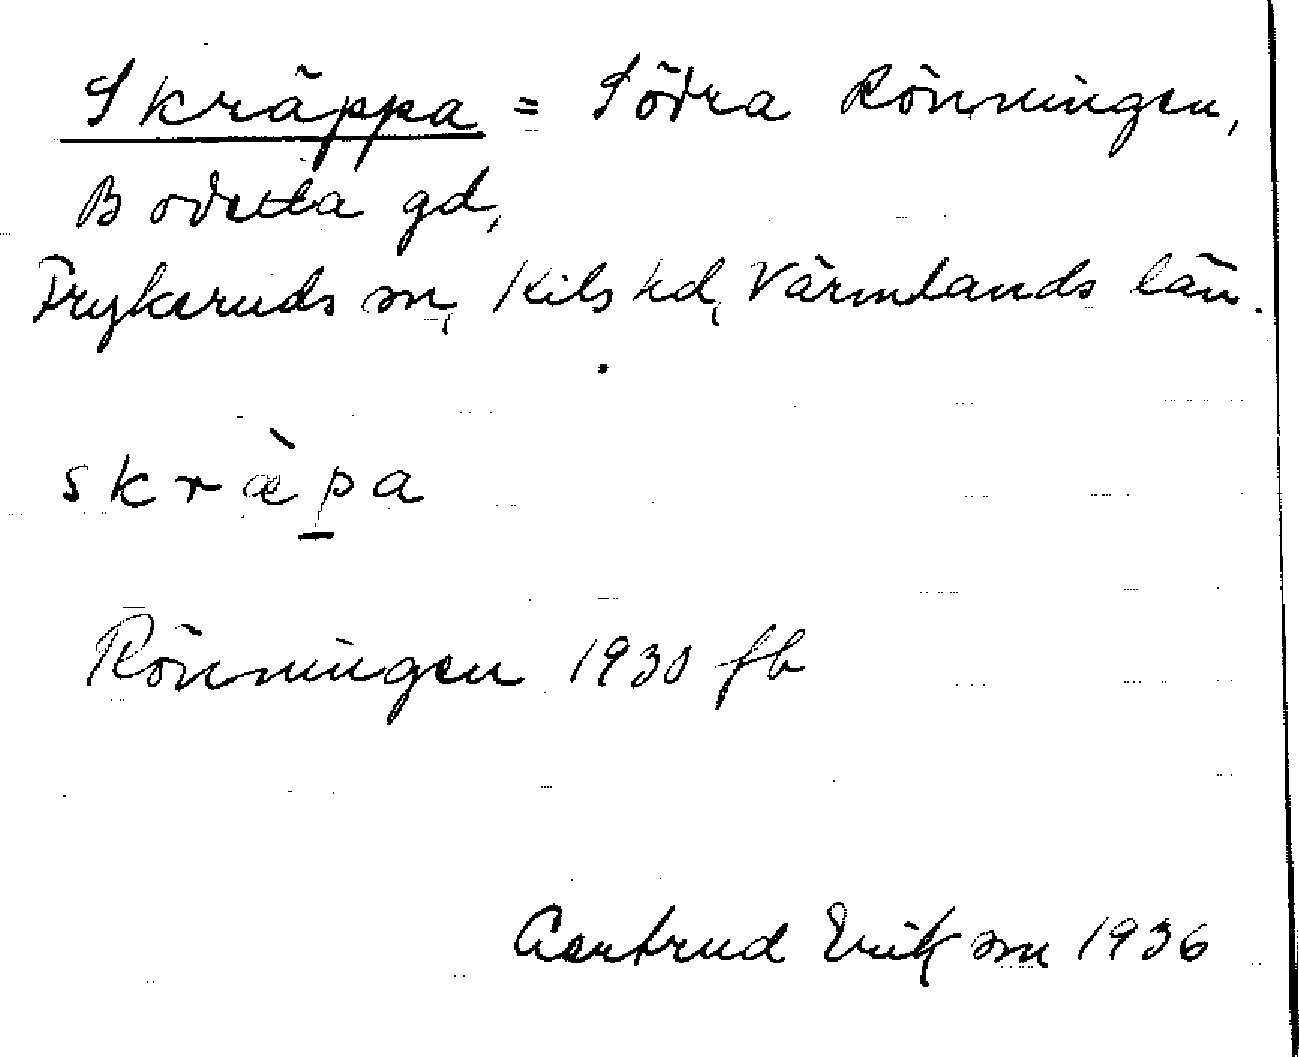 Skräppa = Södra Rönningen,
Bodetta gd,
Frykeruds sn, Kils hd, Värmlands län.
skræ̀p̱a
Rönningen 1930 fb
Gertrud Erikson 1936